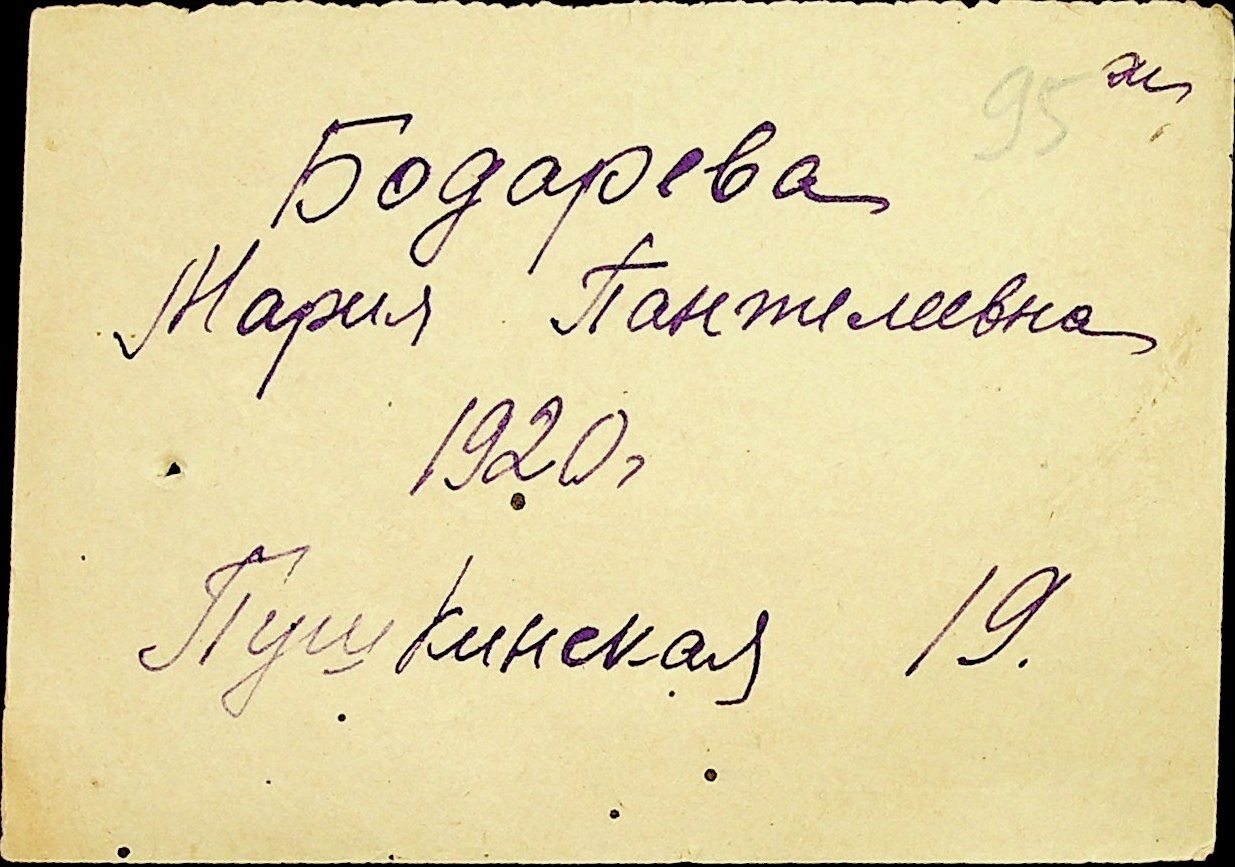 95 ж
Бодарева
Мария Пантелеевна
1920г
Пушкинская 19.